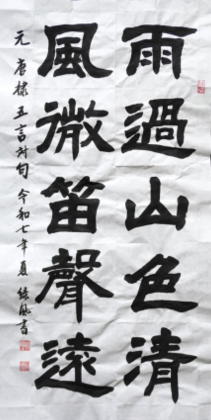 雨過山色清
風微笛聲遠
元 唐棣 五言対句 令和七年夏